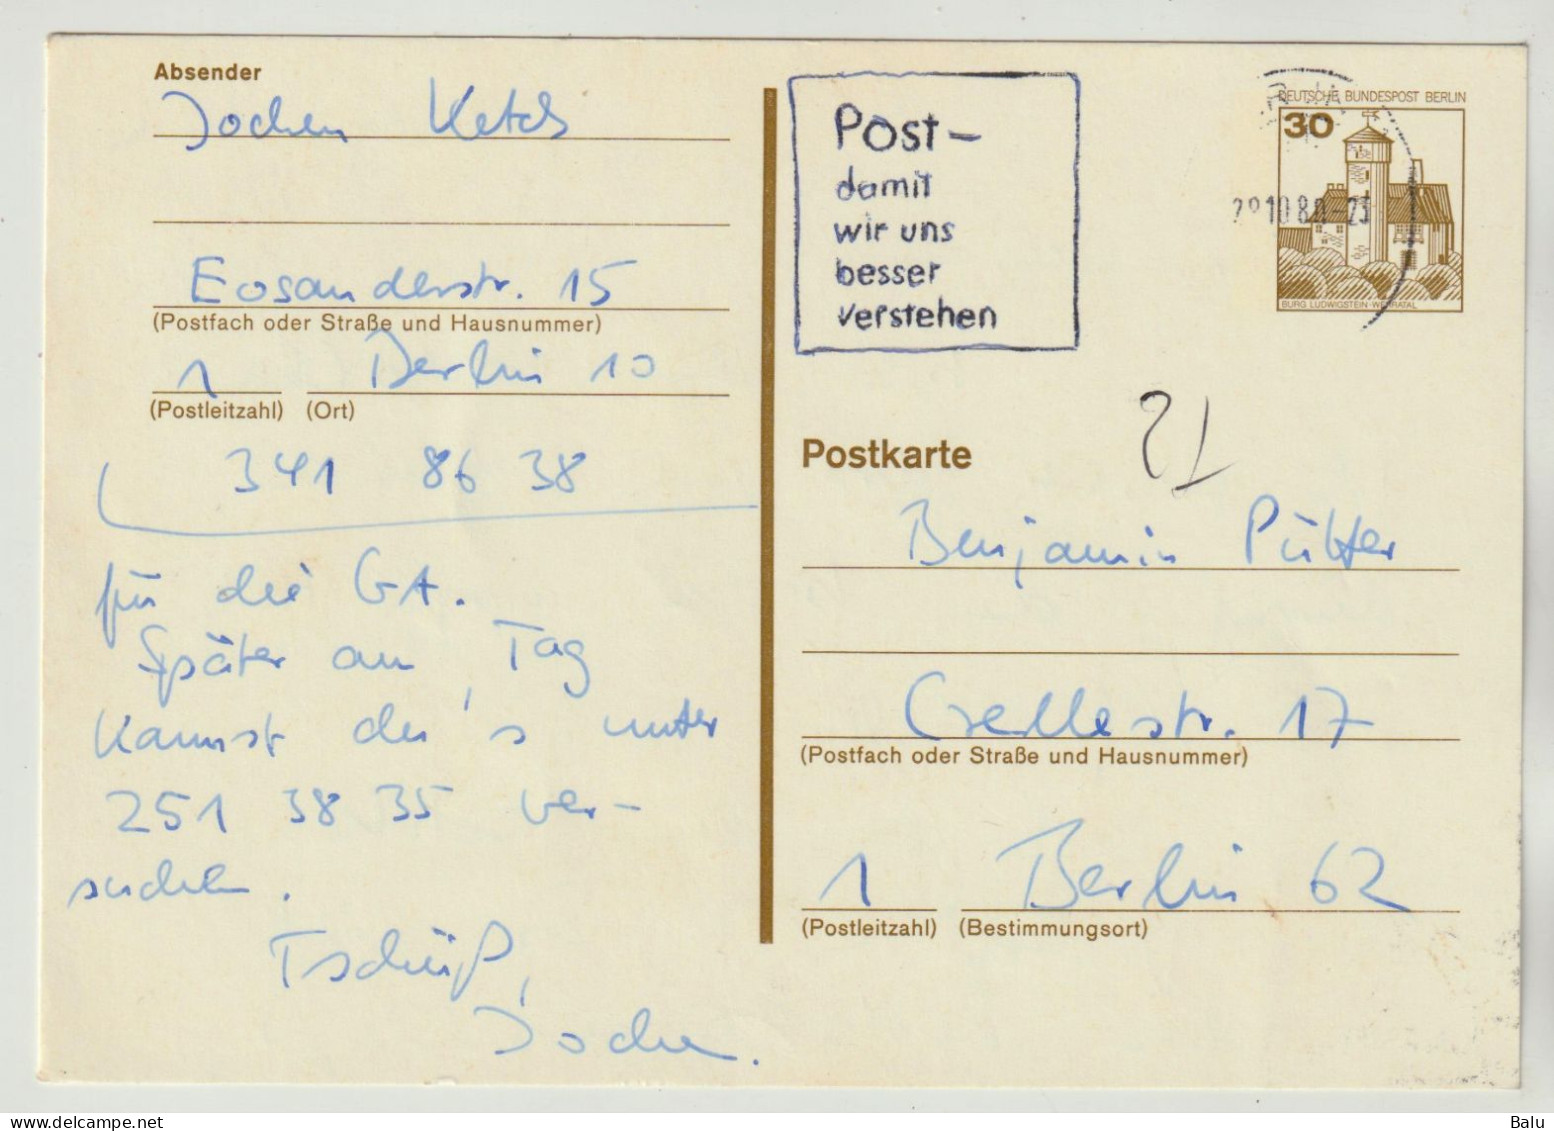 Absender
Jochen Ketels
Eosanderstr. 15
(Postfach oder Straße und Hausnummer)
1 Berlin 10
(Postleitzahl) (Ort)
341 86 38
für die GA.
Später am Tag
kannst du's unter
251 38 35 ver-
suchen.
Tschüß,
Jochen.
Post-
damit
wir uns
besser
verstehen
DEUTSCHE BUNDESPOST BERLIN
30
BURG LUDWIGSTEIN · WERRATAL
Postkarte
21
Benjamin Pütter
Gellestr. 17
(Postfach oder Straße und Hausnummer)
1 Berlin 62
(Postleitzahl) (Bestimmungsort)
Balu